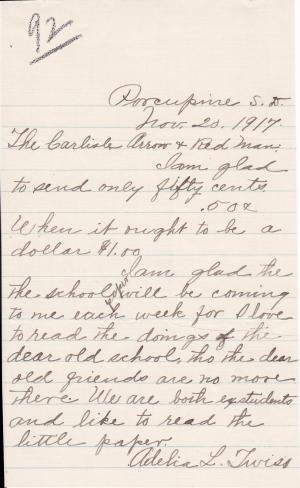 92
Porcupine S.D.
Nov. 20. 1917.
The Carlisle Arrow & Red Man.
I am glad
to send only fifty cents
.50¢
When it ought to be a
dollar $1.00
I am glad the
the school will be coming
to me each week for I love
to read the doings of the
dear old school, tho the dear
old friends are no more
there We are both exstudents
and like to read the
little paper.
Adelia L. Twiss